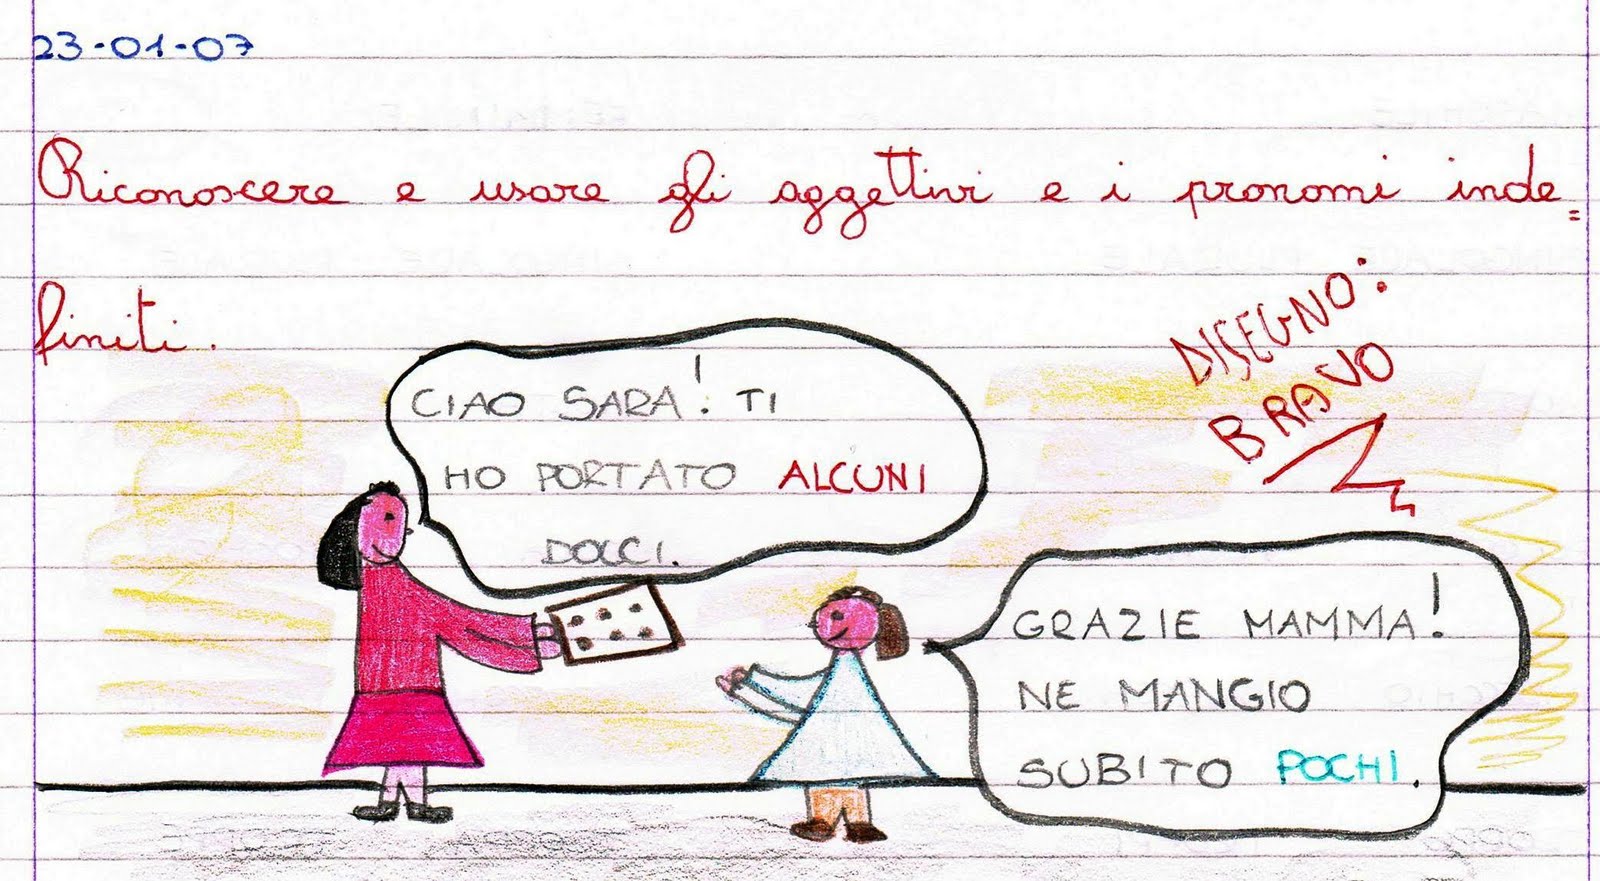 23-01-07
Riconoscere e usare gli aggettivi e i pronomi inde=
finiti.
DISEGNO:
BRAVO
CIAO SARA! TI
HO PORTATO ALCUNI
DOLCI.
GRAZIE MAMMA!
NE MANGIO
SUBITO POCHI.